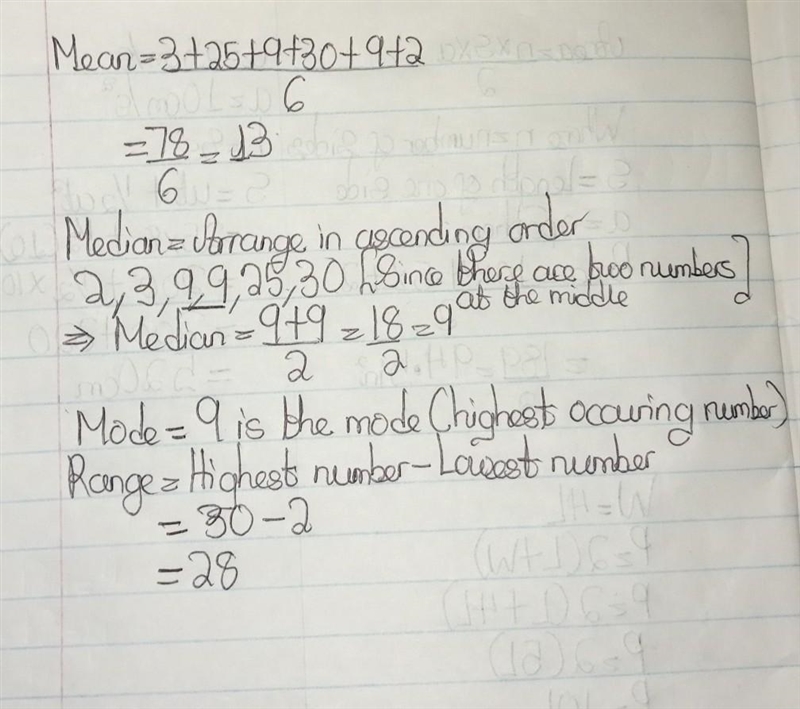 Mean = 3+25+9+30+9+2
6
= 78 = 13
6
Median = Arrange in ascending order
2, 3, 9, 9, 25, 30 [Since there are two numbers at the middle]
⇒ Median = 9+9 = 18 = 9
2 2
Mode = 9 is the mode (highest occuring number)
Range = Highest number - Lowest number
= 30 - 2
= 28